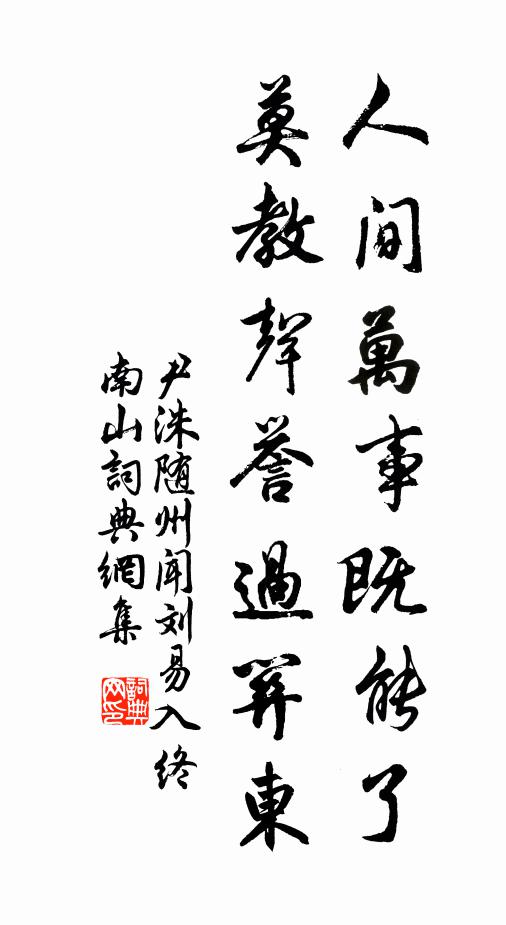 人間萬事既能了
莫教聲譽過關東
尹洙随州闻刘易入终
南山詞典網集
詞典
网印